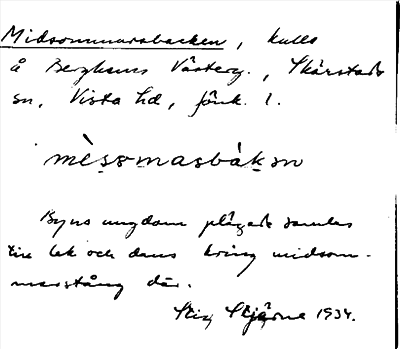 Midsommarsbacken, kulle
å Berghems Västerg., Skärstads
sn, Vista hd, Jönk. l.
mèsomasbàkən
Byns ungdom plägade samlas
till lek och dans kring midsom-
marstång där.
Stig Stjärne 1934.